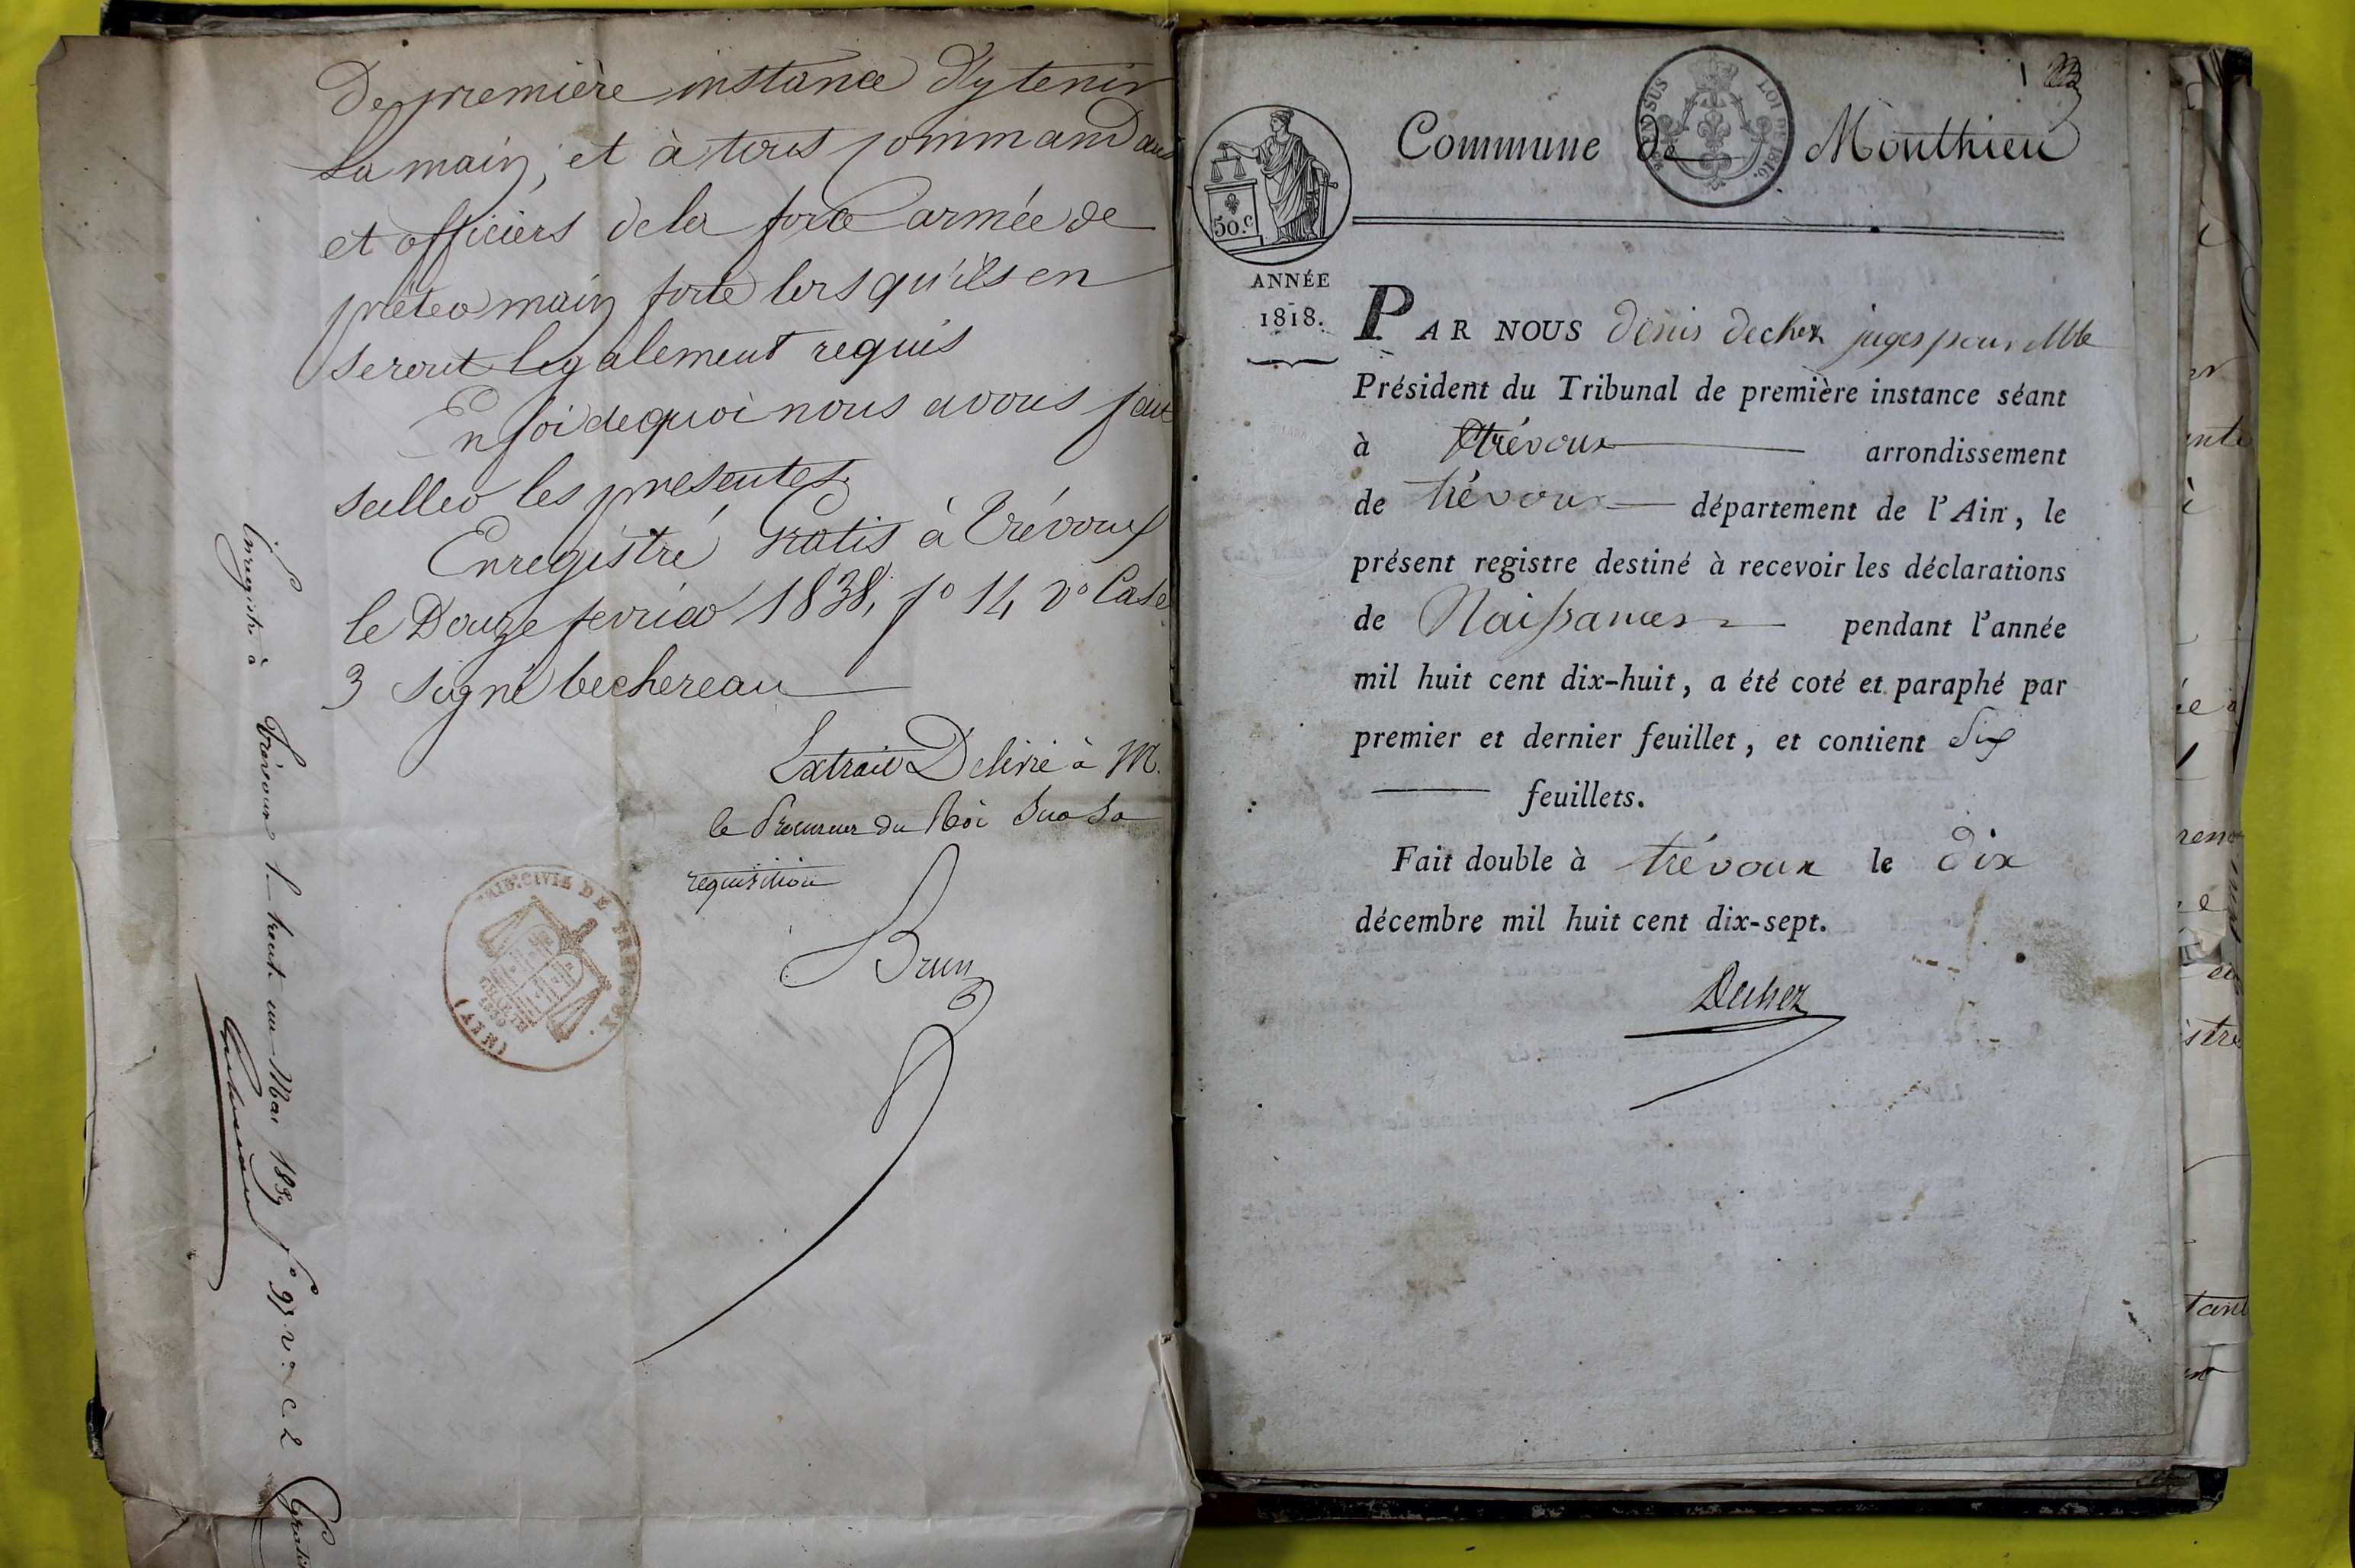 De première instance d'y tenir
la main, et à tous commandans
et officiers de la force armée de
prêter main forte lorsqu'ils en
seront légalement requis
En foi de quoi nous avons fait
seller les presentes.
Enregistré Gratis à Trévoux
le Douze fevrier 1838, fo 14 vo Case
3 signé bechereau
Extrait Délivré à M.
le Procureur du Roi sur sa
requisition
Brun
TRIB. CIVIL DE TREVOUX.
(AIN)
Enregistré à Trévoux le trente un Mai 183 fo 97 vo c. 2 Gratis
1
Commune de Monthieu
EN SUS LOI DE 1816.
50.c
ANNÉE
1818.
PAR NOUS denis dechez juge pour Mr le
Président du Tribunal de première instance séant
à trévoux arrondissement
de trévoux département de l'Ain, le
présent registre destiné à recevoir les déclarations
de Naissances pendant l'année
mil huit cent dix-huit, a été coté et paraphé par
premier et dernier feuillet, et contient Six
feuillets.
Fait double à trévoux le dix
décembre mil huit cent dix-sept.
Dechez